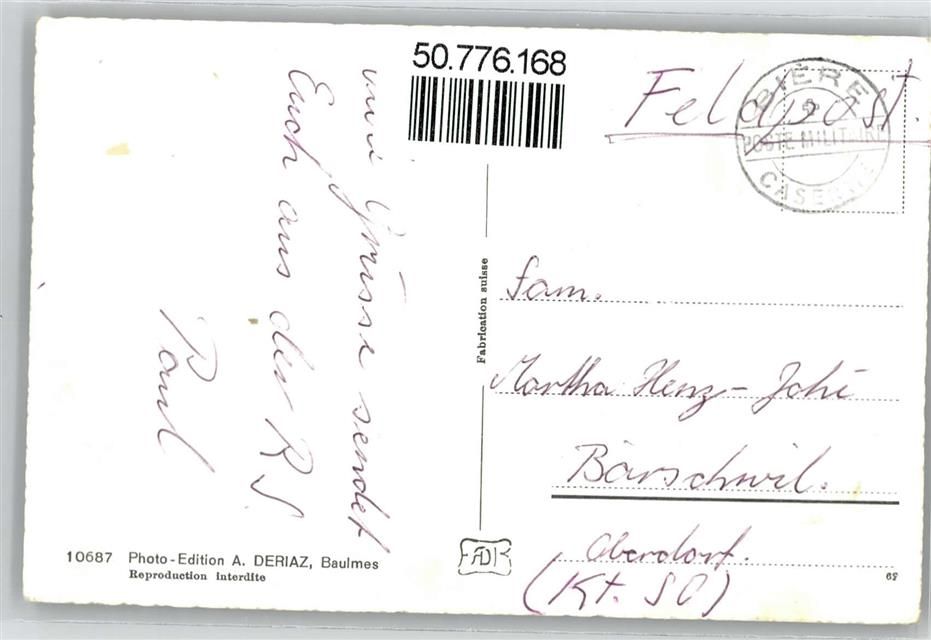 50.776.168
Feldpost.
BIÈRE
POSTE MILITAIRE
CASERNE
Grüsse sendet
Euch aus der RS
Paul
Fabrication suisse
Fam.
Martha Henz-Jehi
Bärschwil.
Oberdorf.
(Kt. SO)
10687 Photo-Edition A. DERIAZ, Baulmes
Reproduction interdite